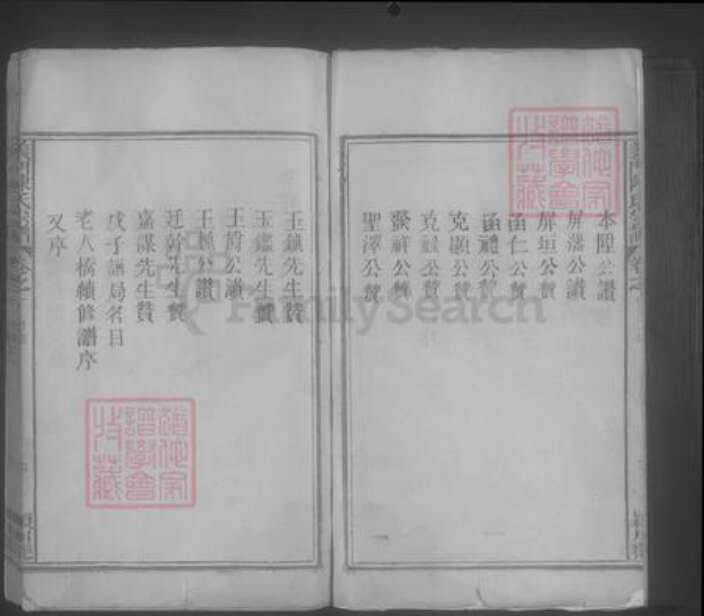 本陞公讚
屏藩公讚
屏垣公贊
函仁公贊
函禮公贊
克顯公贊
克祿公贊
公贊
聖澤公贊
玉鎮先生贊
玉鑑先生贊
玉爵公讚
玉極公讚
廷幹先生贊
嘉謀先生贊
戊子譜局名目
老人橋續修譜序
又序
FamilySearch
譜學會
藏
譜學會
藏